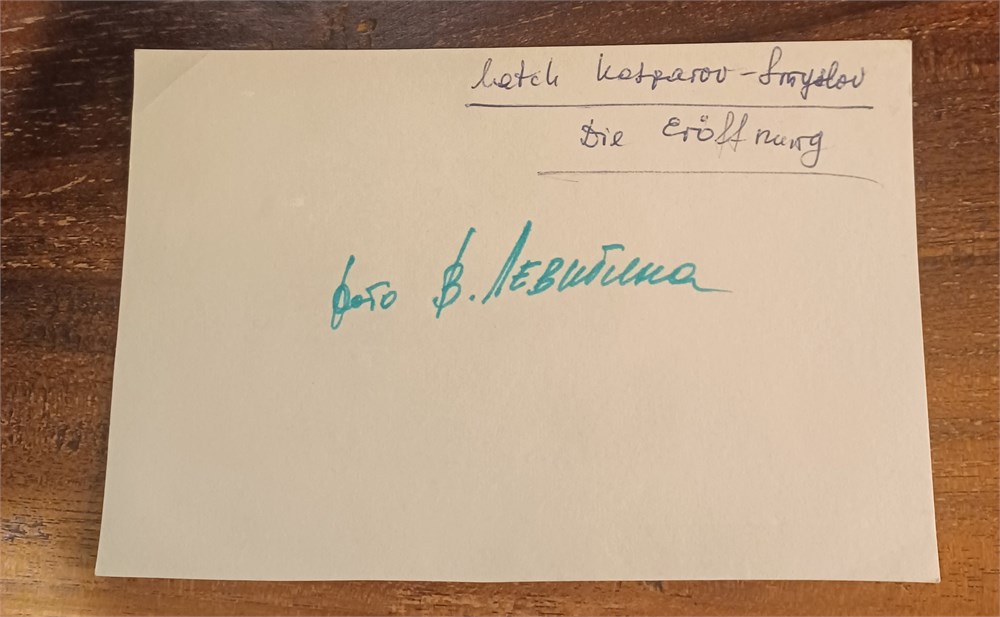 Match Kasparov-Smyslov
Die Eröffnung
фото В. Левитина